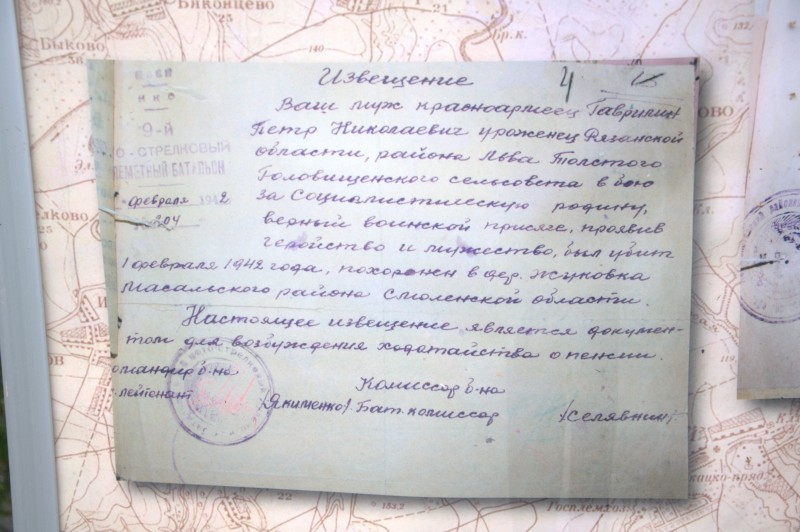 Быконцево
Быково
Бр.к.
Извещение
Ваш муж красноармеец Гаврилин
Петр Николаевич уроженец Рязанской
области, района Льва Толстого
Головищенского сельсовета в бою
за Социалистическую родину,
верный воинской присяге, проявив
геройство и мужество, был убит
1 февраля 1942 года, похоронен в дер. Жуковка
Масальского района Смоленской области.
Настоящее извещение является докумен-
том для возбуждения ходатайства о пенсии.
НКО
9-й
О-СТРЕЛКОВЫЙ
ЛЕМЕТНЫЙ БАТАЛЬОН
февраля 1942
204
омандир б-на
лейтенант
Якименко/.
Комиссар б-на
Бат. комиссар
/Селявнин/.
22
153,2
Госплемхоз